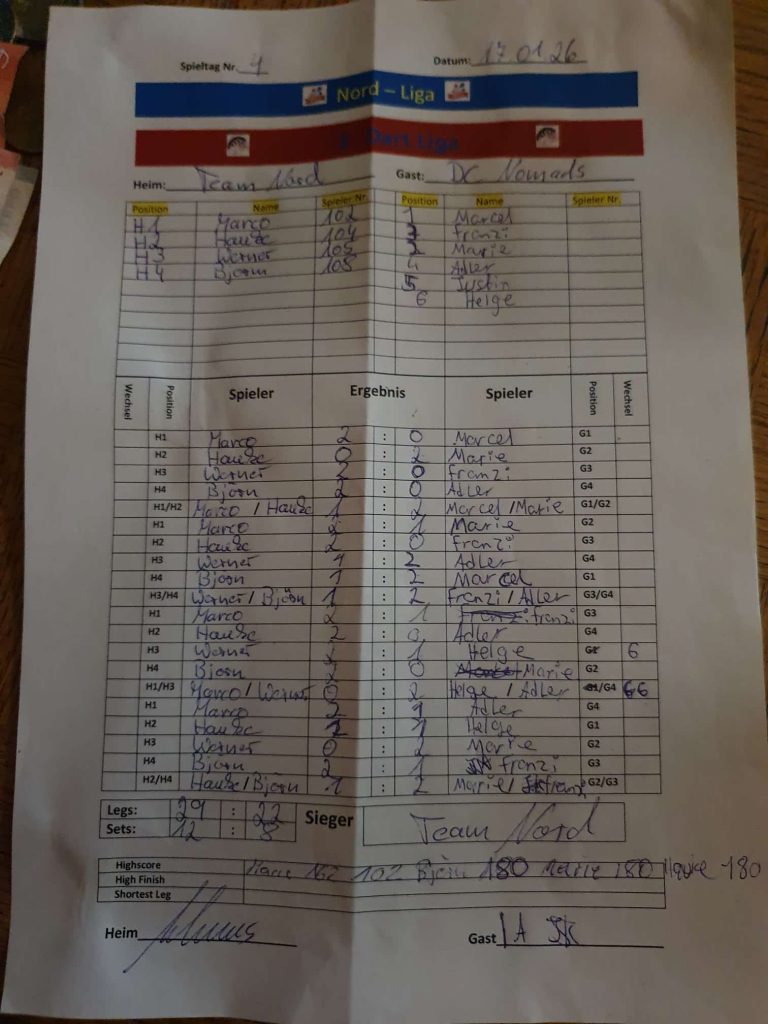 Spieltag Nr. 4 Datum: 17.01.26
Nord – Liga
Dart Liga
Heim: Team Nord Gast: DC Nomads
Position Name Spieler Nr. Position Name Spieler Nr.
H1 Marco 102 1 Marcel
H2 Hauke 104 2 Franzi
H3 Werner 105 3 Marie
H4 Björn 108 4 Adler
5 Justin
6 Helge
Wechsel Position Spieler Ergebnis Spieler Position Wechsel
H1 Marco 2 : 0 Marcel G1
H2 Hauke 0 : 2 Marie G2
H3 Werner 2 : 0 Franzi G3
H4 Björn 2 : 0 Adler G4
H1/H2 Marco / Hauke 1 : 2 Marcel / Marie G1/G2
H1 Marco 2 : 1 Marie G2
H2 Hauke 2 : 0 Franzi G3
H3 Werner 1 : 2 Adler G4
H4 Björn 1 : 2 Marcel G1
H3/H4 Werner / Björn 1 : 2 Franzi / Adler G3/G4
H1 Marco 2 : 1 franzi G3
H2 Hauke 2 : 0 Adler G4
H3 Werner : 1 Helge G1 6
H4 Björn 2 : 0 Marie G2
H1/H3 Marco / Werner 0 : 2 Helge / Adler G1/G4 6
H1 Marco 2 : 1 Adler G4
H2 Hauke 2 : 1 Helge G1
H3 Werner 0 : 2 Marie G2
H4 Björn 2 : 1 franzi G3
H2/H4 Hauke / Björn 1 : 2 Marie / franzi G2/G3
Legs: 29 : 22
Sets: 12 : 8
Sieger Team Nord
Highscore 102 Björn 180 Marie 180 Hauke 180
High Finish
Shortest Leg
Heim Gast